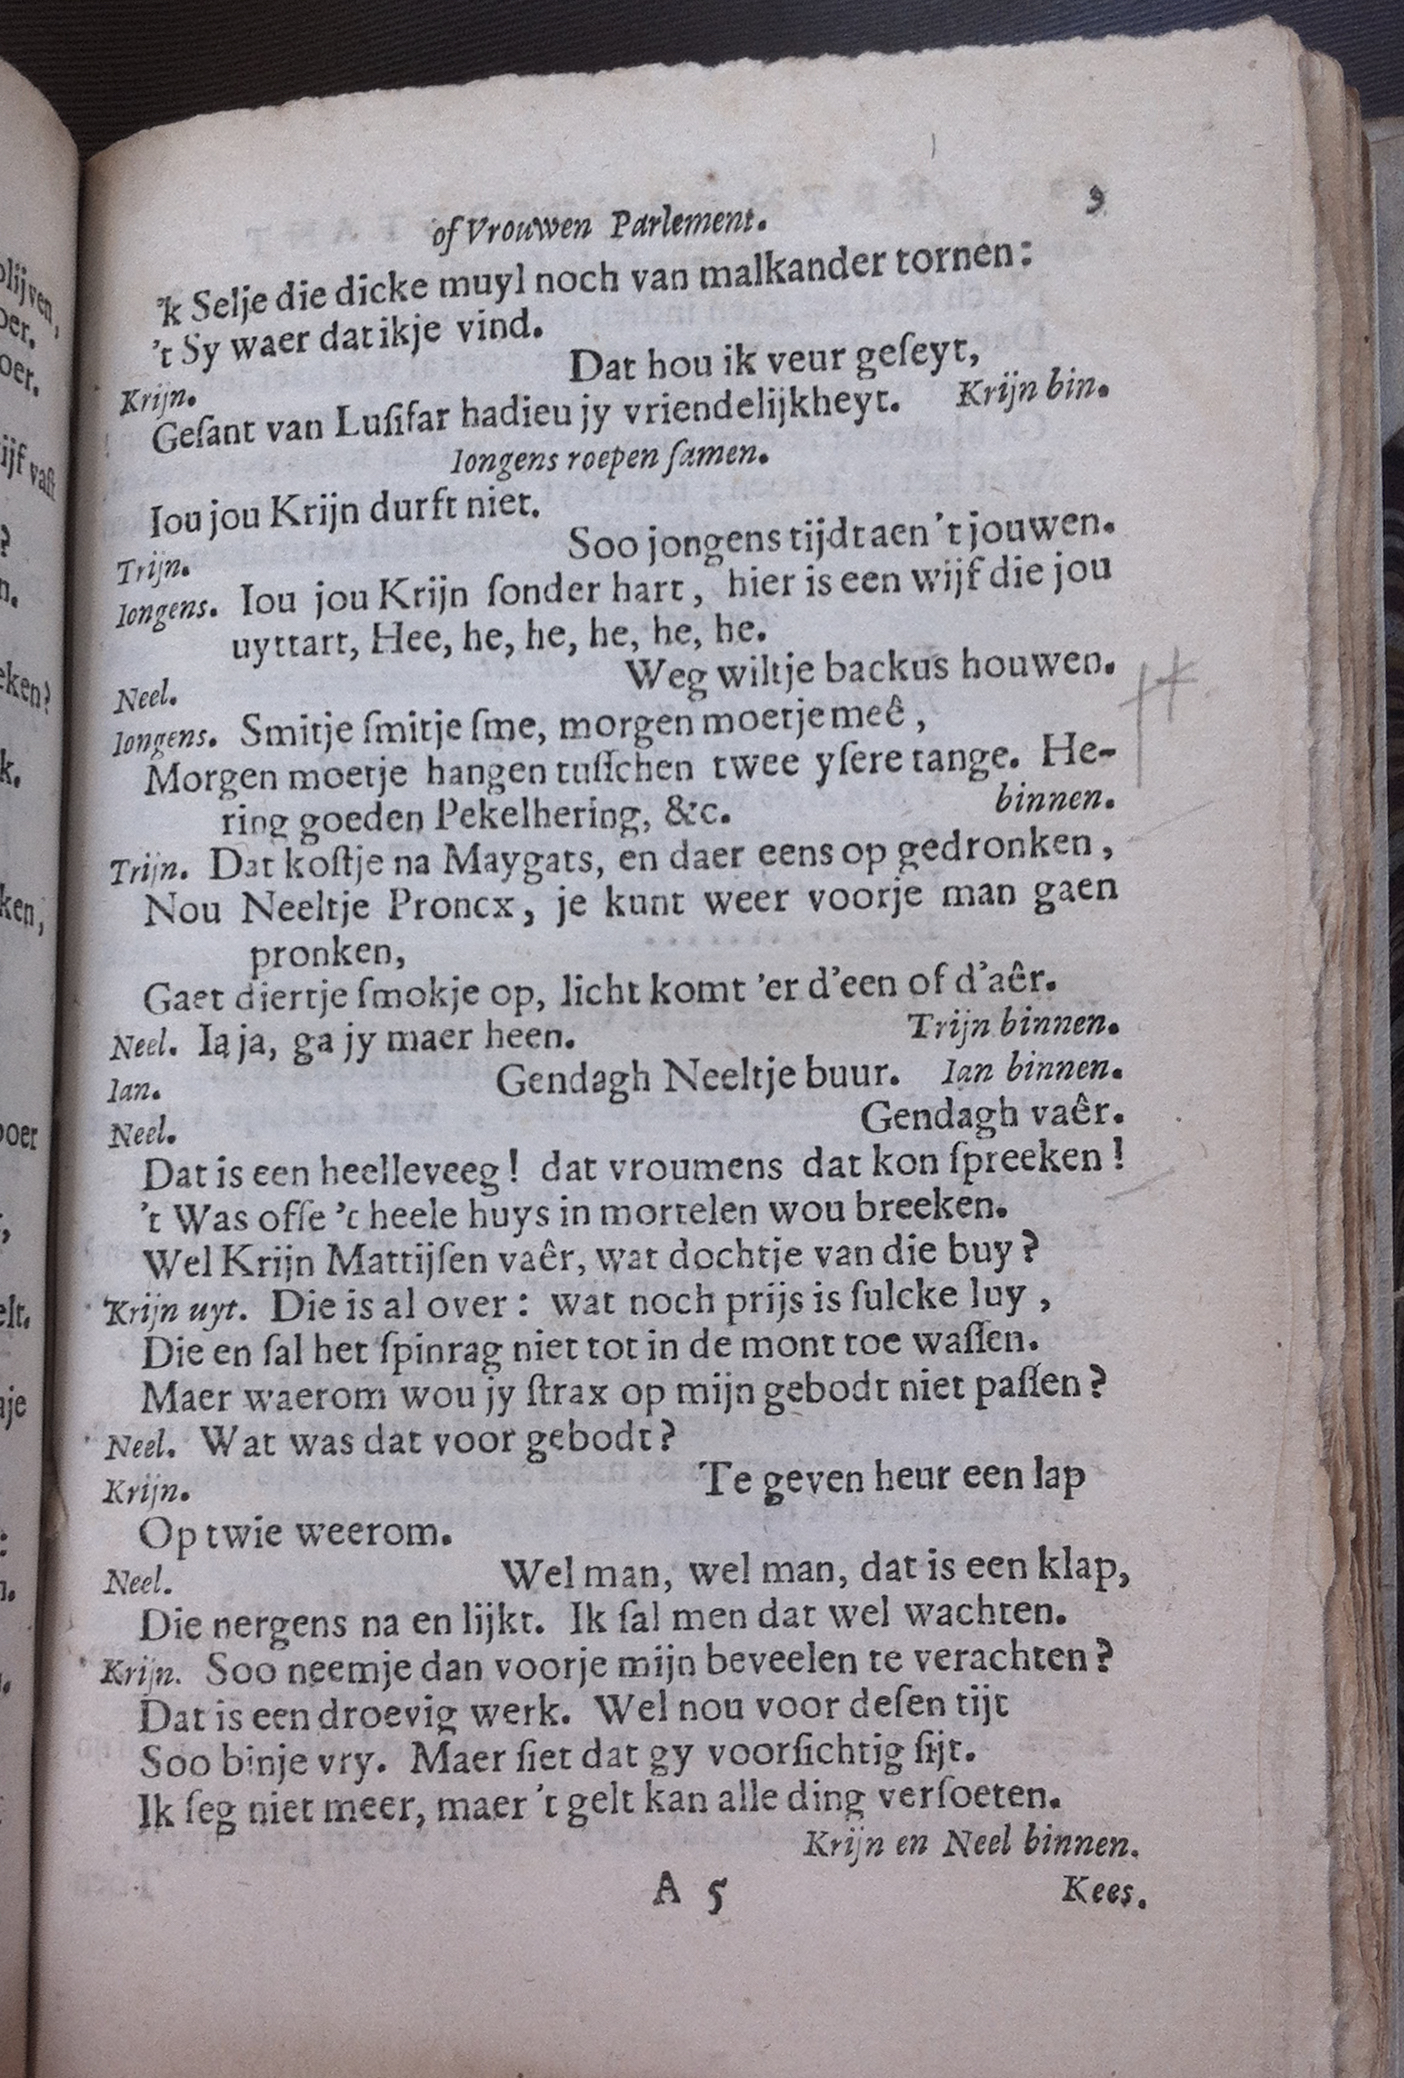 of Vrouwen Parlement. 9
'k Selje die dicke muyl noch van malkander tornen:
't Sy waer dat ikje vind.
Krijn. Dat hou ik veur geſeyt,
Geſant van Luſifar hadieu jy vriendelijkheyt. Krijn bin.
Iongens roepen ſamen.
Iou jou Krijn durft niet.
Trijn. Soo jongens tijdt aen 't jouwen.
Iongens. Iou jou Krijn ſonder hart, hier is een wijf die jou
uyttart, Hee, he, he, he, he, he.
Neel. Weg wiltje backus houwen.
Iongens. Smitje ſmitje ſme, morgen moetje meê,
Morgen moetje hangen tuſſchen twee yſere tange. He-
ring goeden Pekelhering, &c. binnen.
Trijn. Dat koſtje na Maygats, en daer eens op gedronken,
Nou Neeltje Proncx, je kunt weer voorje man gaen
pronken,
Gaet diertje ſmokje op, licht komt 'er d'een of d'aêr.
Neel. Ia ja, ga jy maer heen. Trijn binnen.
Ian. Gendagh Neeltje buur. Ian binnen.
Neel. Gendagh vaêr.
Dat is een heelleveeg! dat vroumens dat kon ſpreeken!
't Was ofſe 't heele huys in mortelen wou breeken.
Wel Krijn Mattijſen vaêr, wat dochtje van die buy?
Krijn uyt. Die is al over: wat noch prijs is ſulcke luy,
Die en ſal het ſpinrag niet tot in de mont toe waſſen.
Maer waerom wou jy ſtrax op mijn gebodt niet paſſen?
Neel. Wat was dat voor gebodt?
Krijn. Te geven heur een lap
Op twie weerom.
Neel. Wel man, wel man, dat is een klap,
Die nergens na en lijkt. Ik ſal men dat wel wachten.
Krijn. Soo neemje dan voorje mijn beveelen te verachten?
Dat is een droevig werk. Wel nou voor deſen tijt
Soo binje vry. Maer ſiet dat gy voorſichtig ſijt.
Ik ſeg niet meer, maer 't gelt kan alle ding verſoeten.
Krijn en Neel binnen.
A 5 Kees.